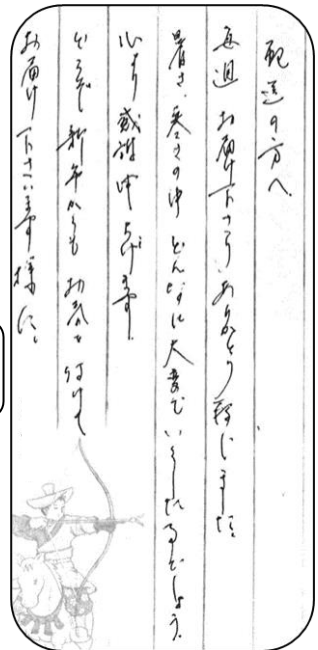 配送の方へ
毎週 お届け下さり、ありがとう存じました。
暑さ、寒さの中 どんなに大変でいらしたことでしょう。
心より感謝申し上げます。
どうぞ 新年からも お気を付けて
お届け下さいます様に。